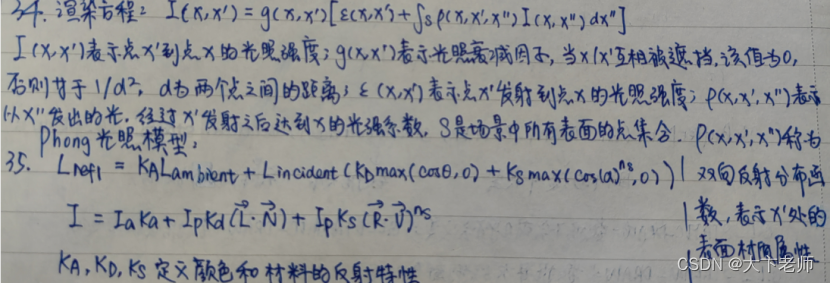 34. 渲染方程: I(x,x') = g(x,x')[ε(x,x') + ∫s ρ(x,x',x'') I(x,x'') dx'']
I(x,x')表示点x'到点x的光照强度；g(x,x')表示光照衰减因子，当x/x'互相被遮挡，该值为0，
否则等于1/d²，d为两个点之间的距离；ε(x,x')表示点x'发射到点x的光照强度；ρ(x,x',x'')表示
从x''发出的光，经过x'发射之后达到x的光强系数，S是场景中所有表面的点集合。ρ(x,x',x'')称为
Phong光照模型。
35. Lrefl = KA Lambient + Lincident (KD max(cosθ,0) + KS max(cos(α)^ns,0)) | 双向反射分布函
I = IaKa + IpKd(L⃗·N⃗) + IpKs(R⃗·V⃗)^ns | 数，表示x'处的
表面材质属性
KA, KD, KS 定义颜色和材料的反射特性
CSDN @天下老师